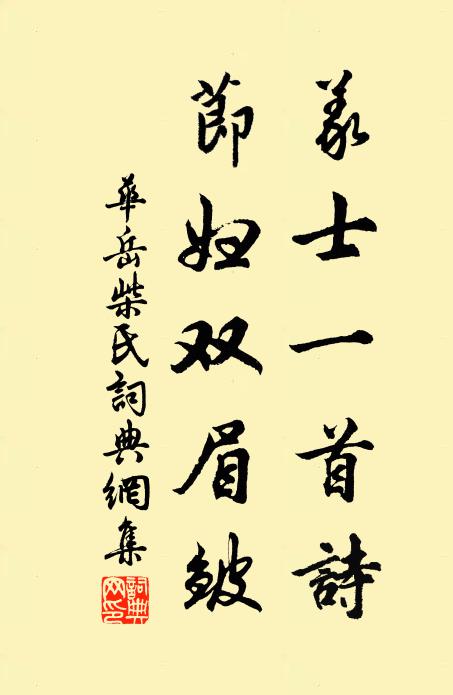 義士一首詩
節妇双眉皺
華岳柴氏詞典網集
詞典网印